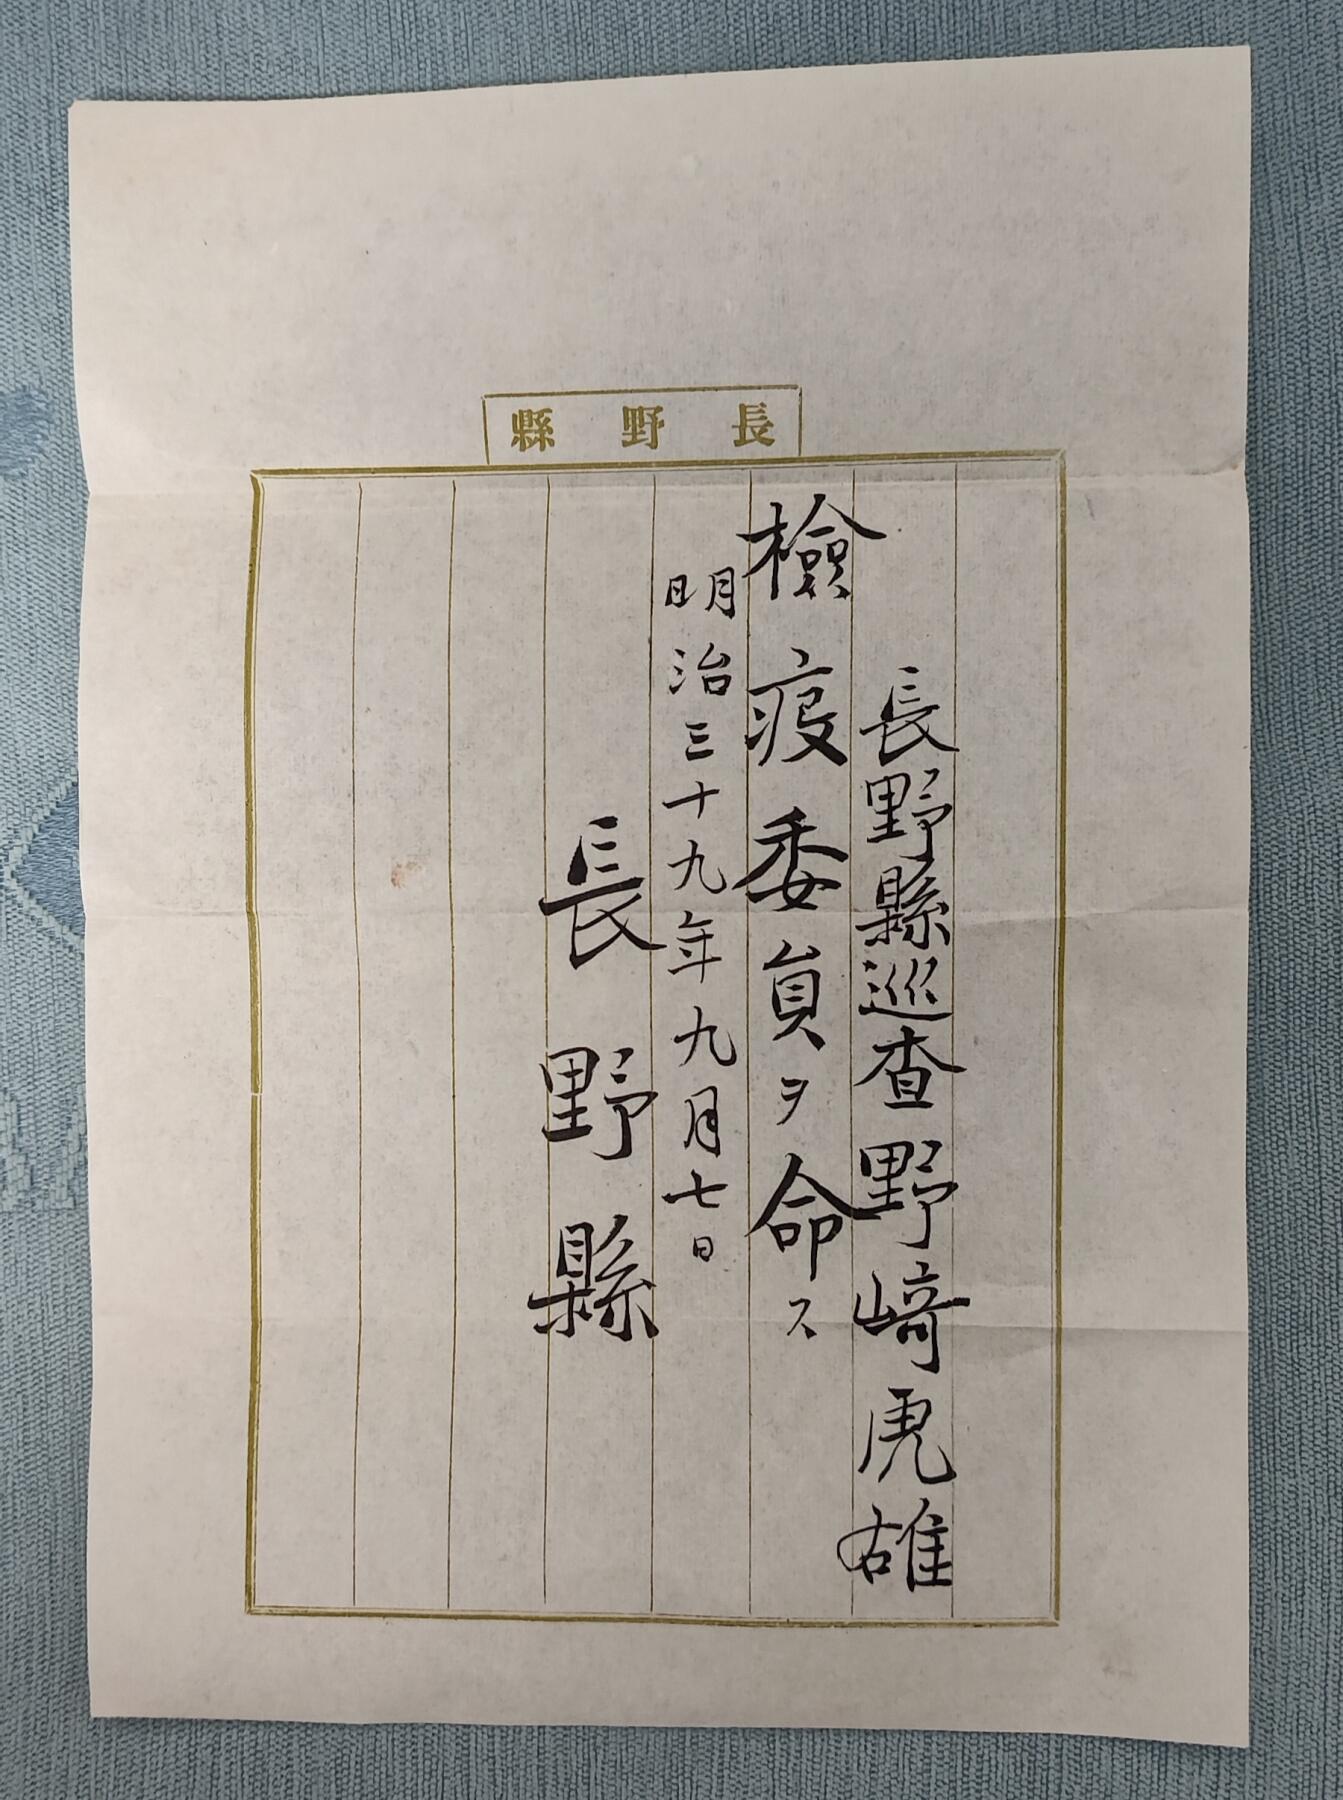 長野縣
長野縣巡査野﨑虎雄
檢疫委員ヲ命ス
明治三十九年九月七日
長野縣